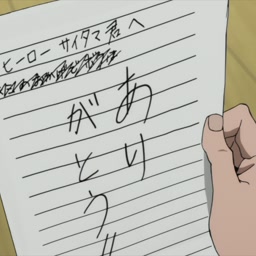 ヒーロー サイタマ君へ
あり
がとう!!